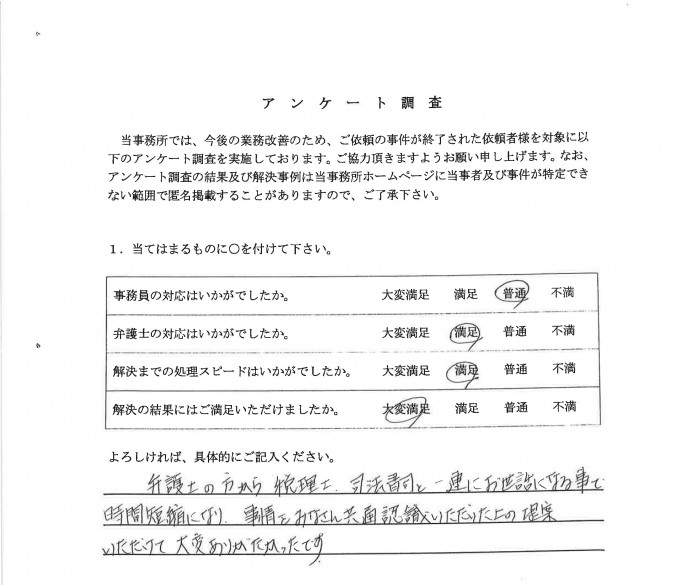 アンケート調査
当事務所では、今後の業務改善のため、ご依頼の事件が終了された依頼者様を対象に以
下のアンケート調査を実施しております。ご協力頂きますようお願い申し上げます。なお、
アンケート調査の結果及び解決事例は当事務所ホームページに当事者及び事件が特定でき
ない範囲で匿名掲載することがありますので、ご了承下さい。
1．当てはまるものに○を付けて下さい。
事務員の対応はいかがでしたか。 大変満足 満足 普通 不満
弁護士の対応はいかがでしたか。 大変満足 満足 普通 不満
解決までの処理スピードはいかがでしたか。 大変満足 満足 普通 不満
解決の結果にはご満足いただけましたか。 大変満足 満足 普通 不満
よろしければ、具体的にご記入ください。
弁護士の方から税理士、司法書司と一連にお世話になる事で
時間短縮になり、事情をみなさん共通認識いただいた上の提案
いただけて大変ありがたかったです